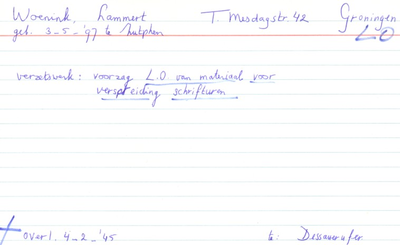 Woenink, Lammert T. Mesdagstr. 42 Groningen
geb. 3-5-'97 te Zutphen LO
verzetswerk: voorzag L.O van materiaal voor
verspreiding schrifturen
overl. 4-2-'45 te: Dissauerufer